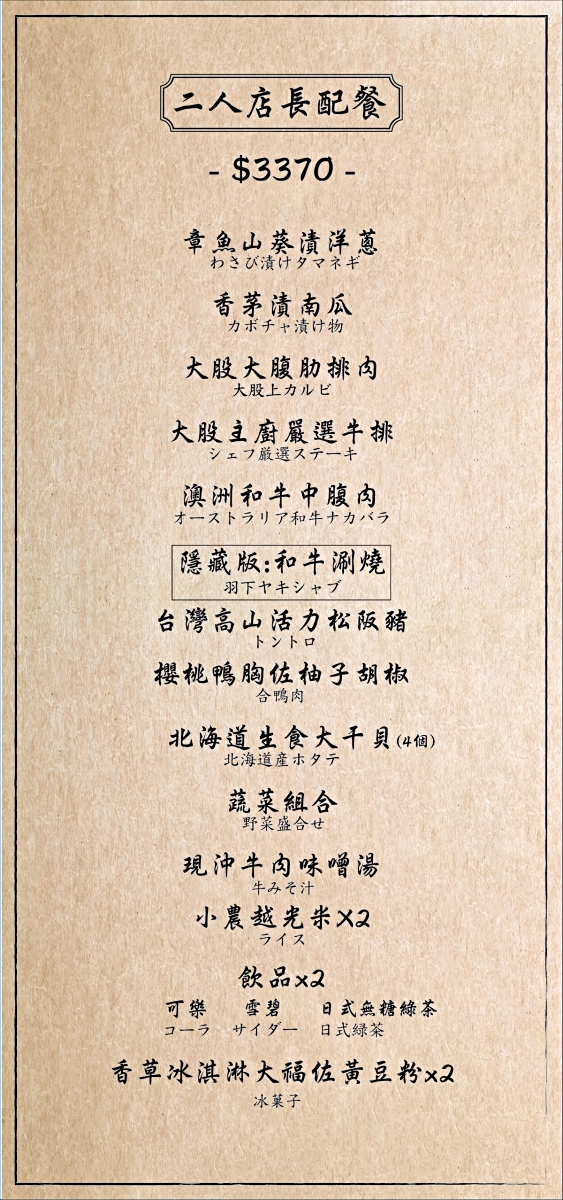 二人店長配餐
- $3370 -
章魚山葵漬洋蔥
わさび漬けタマネギ
香茅漬南瓜
カボチャ漬け物
大股大腹肋排肉
大股上カルビ
大股主廚嚴選牛排
シェフ厳選ステーキ
澳洲和牛中腹肉
オーストラリア和牛ナカバラ
隱藏版:和牛涮燒
羽下ヤキシャブ
台灣高山活力松阪豬
トントロ
櫻桃鴨胸佐柚子胡椒
合鴨肉
北海道生食大干貝(4個)
北海道産ホタテ
蔬菜組合
野菜盛合せ
現沖牛肉味噌湯
牛みそ汁
小農越光米X2
ライス
飲品x2
可樂 雪碧 日式無糖綠茶
コーラ サイダー 日式緑茶
香草冰淇淋大福佐黃豆粉x2
冰菓子